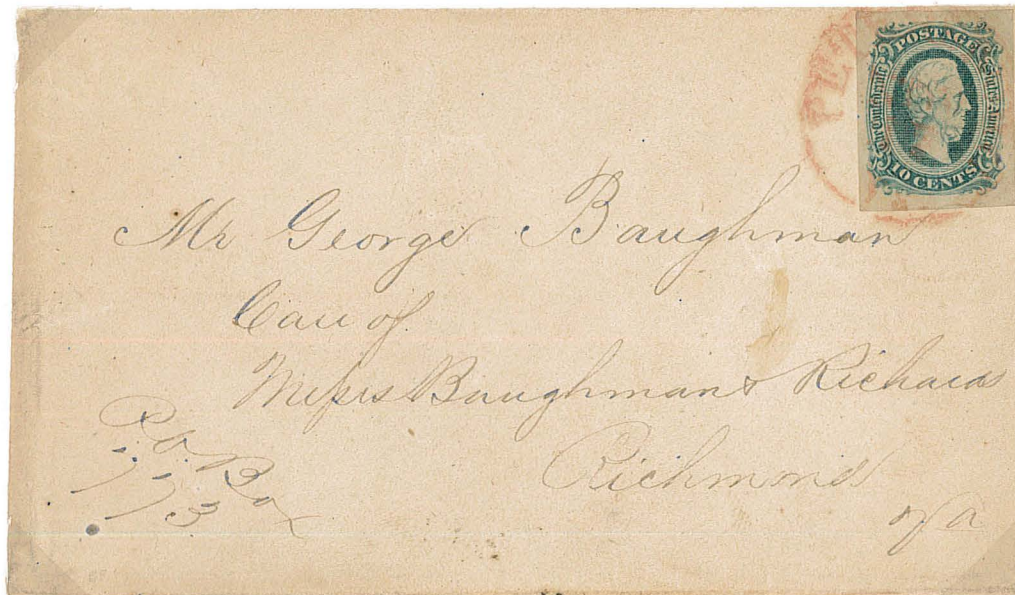 PET
POSTAGE
The Confederate States of America
10 CENTS
Mr George Baughman
Care of
Messrs Baughman & Richards
Richmond
Va
PO Box
113